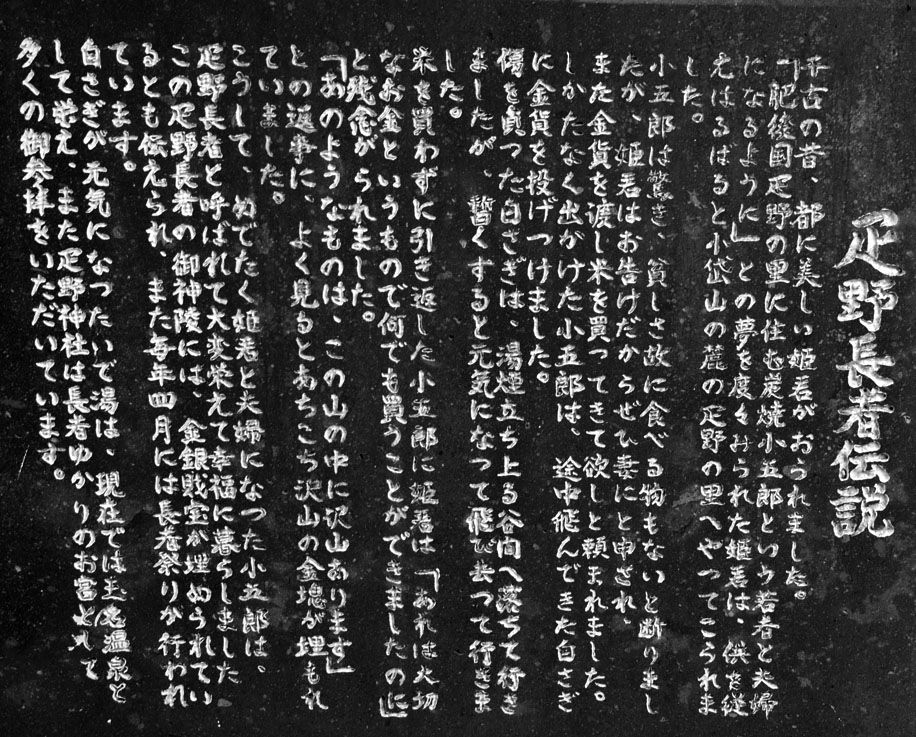 疋野長者伝説
千古の昔、都に美しい姫君がおられました。
「肥後国疋野の里に住む炭焼小五郎という若者と夫婦
になるように」との夢を度々みられた姫君は、供を従
えはるばると小岱山の麓の疋野の里へやってこられま
した。
小五郎は驚き、貧しさ故に食べる物もないと断りまし
たが、姫君はお告げだからぜひ妻にと申され、
また金貨を渡し米を買ってきて欲しと頼まれました。
しかたなく出かけた小五郎は、途中飛んできた白さぎ
に金貨を投げつけました。
傷を負った白さぎは、湯煙立ち上る谷間へ落ちて行き
ましたが、暫くすると元気になって飛び去って行きま
した。
米を買わずに引き返した小五郎に姫君は「あれは大切
なお金というもので何でも買うことができましたのに」
と残念がられました。
「あのようなものは、この山の中に沢山あります」
との返事に、よく見るとあちこち沢山の金塊が埋もれ
ていました。
こうして、めでたく姫君と夫婦になった小五郎は、
疋野長者と呼ばれて大変栄えて幸福に暮らしました
この疋野長者の御神陵には、金銀財宝が埋められてい
るとも伝えられ、また毎年四月には長者祭りが行われ
ています。
白さぎが元気になったいで湯は、現在では玉名温泉と
して栄え、また疋野神社は長者ゆかりのお宮として
多くの御参拝をいただいています。